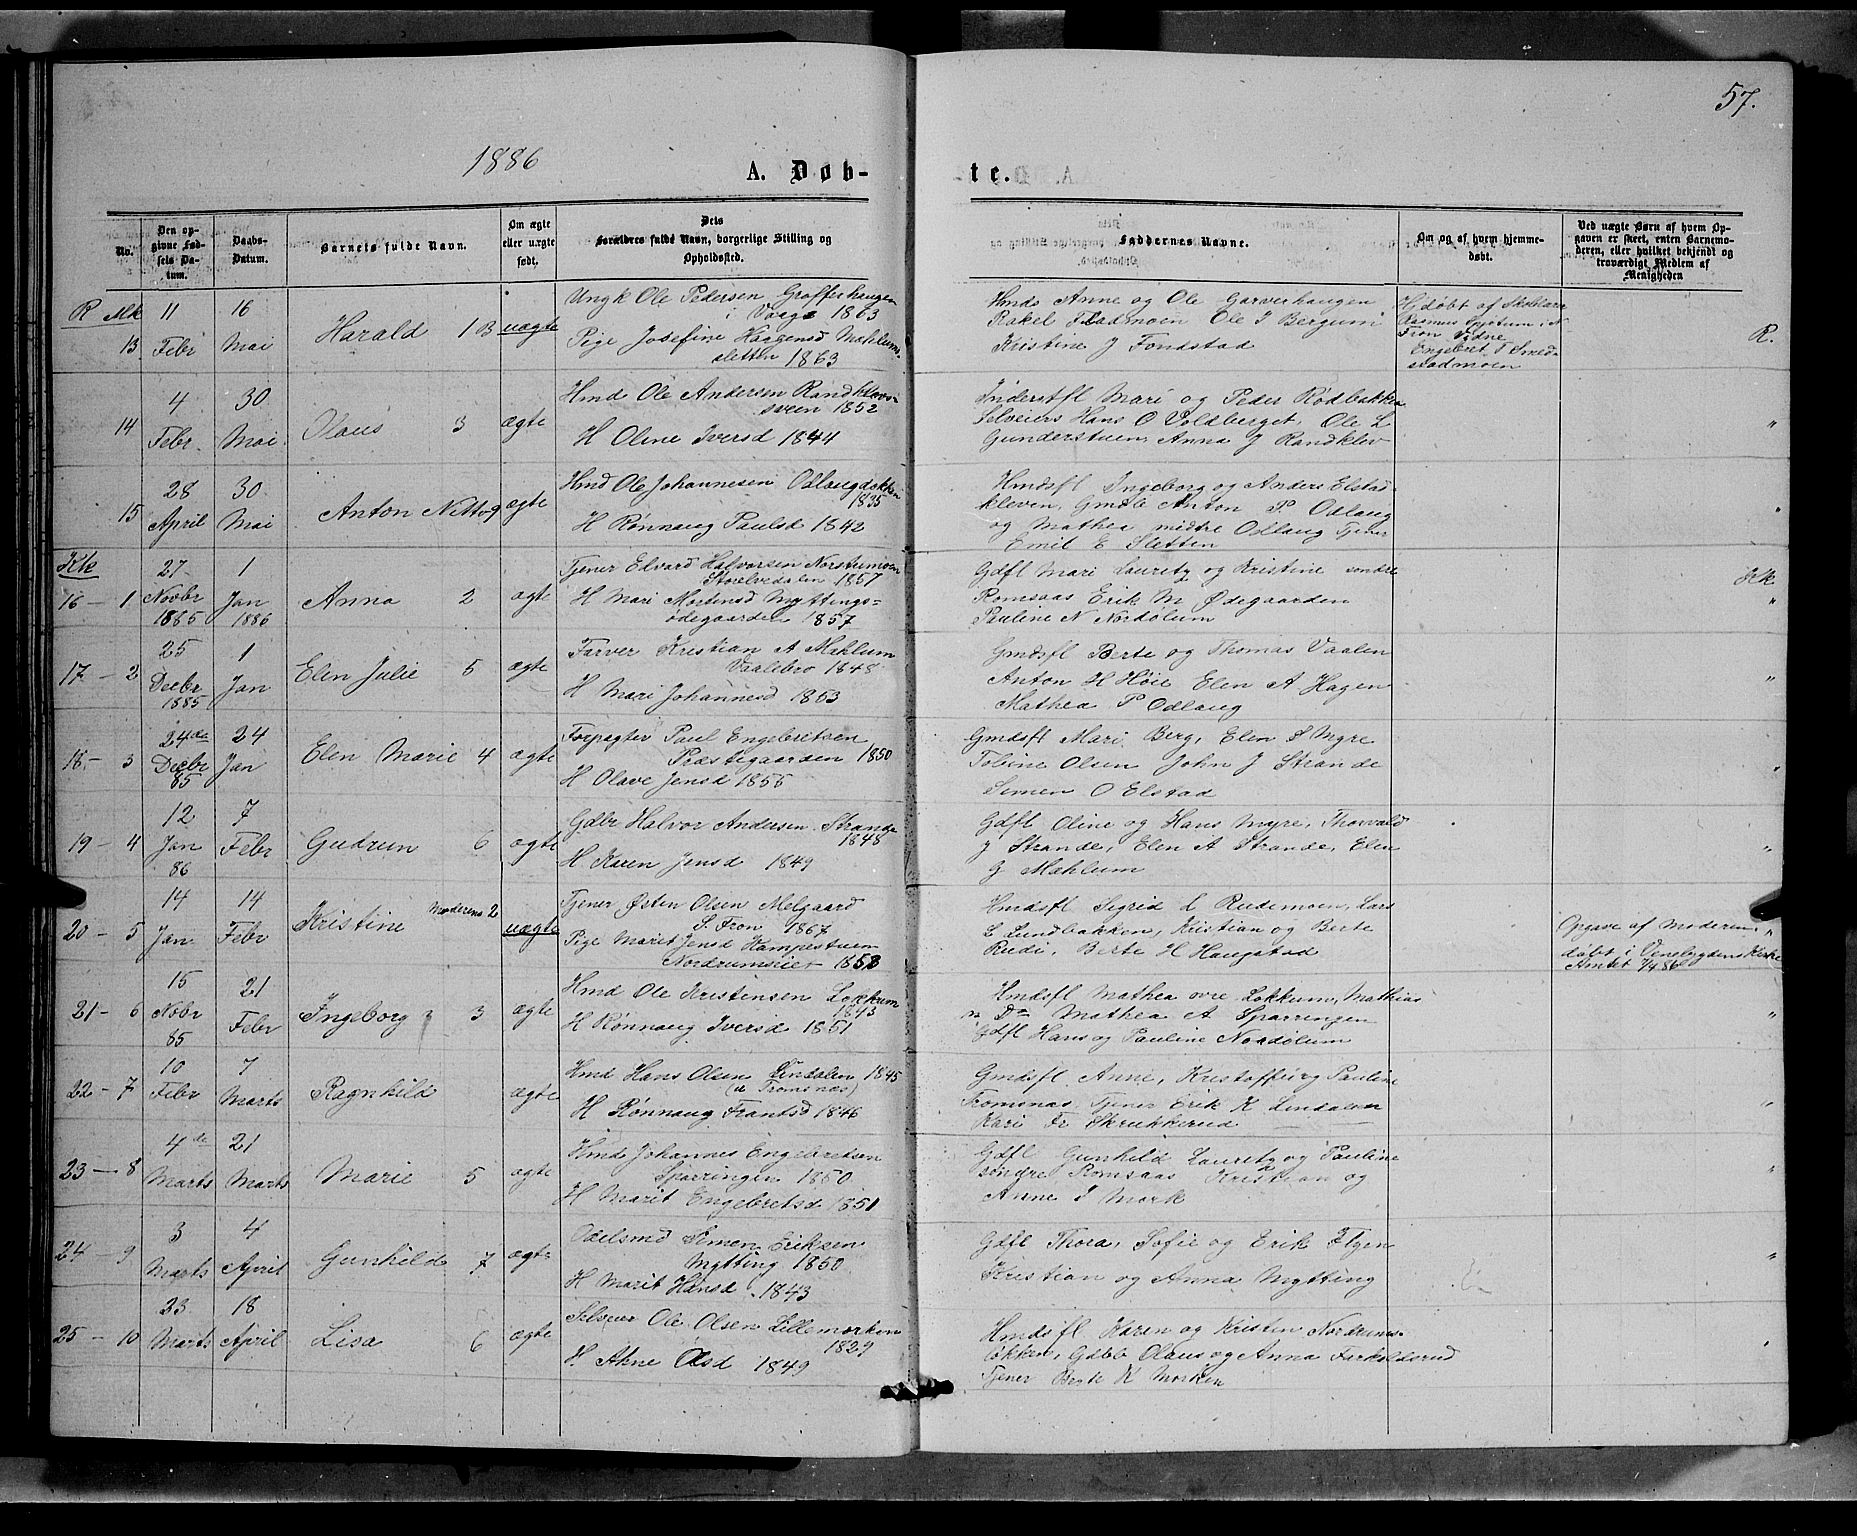 57.
1886
A. Døb-
te.
No.
Den op-
givne Fød-
sels Da-
tum.
Daabs-
Datum.
Barnets fulde Navn.
Om ægte
eller uægte
født.
Dets
Forældres fulde Navn, borgerlige Stilling og
Opholdssted.
Faddernes Navne.
Om og af hvem hjemme-
døbt.
Ved uægte Børn af hvem Op-
gaven er skeet, enten Barnemo-
deren, eller hvilket bekjendt og
troværdigt Medlem af
Menigheden
R Mk 11 16
13 Febr Mai Harald 1 B uægte
Ungk Ole Pedersen Grofferhaugen
i Vaage 1863
Pige Josefine Haagensd Mæhlums-
sletten 1863
Hmds Anne og Ole Garverhaugen
Rakel Fladmoen Ole J Bergum
Kristine J Fondstad
Hdøbt af Skolelærer
Rasmus i N
Fron Vidne
Engebret T Smed-
stadmoen
R.
4 30
14 Febr Mai Olaus 3 ægte
Hmd Ole Andersen Randklevs-
sveen 1852
H Oline Iversd 1844
Inderstfl Mari og Peder Rødbakken
Selveiers Hans O Voldberget, Ole L
Gunderstuen, Anna J Randklev
"
28 30
15 April Mai Anton Nittog ægte
Hmd Ole Johannesen Odlaugbakken
1835
H Rønnaug Paulsd 1842
Hmdsfl Ingeborg og Anders Elstad-
kleven, Gmdb Anton P. Odlaug
og Mathea midtre Odlaug Tjener
Emil E Sletten
"
Kk 27 1
16 - 1 Novbr Jan Anna 2 ægte
1885 1886
Tjener Edvard Halvorsen Norstumoen
Stovlvedalen 1857
H Mari Mortensd Myttings-
ødegaarden 1857
Gdfl Mari Lauretz og Kristine søndre
Romsaas Erik M Ødegaarden
Pauline N Nordølum
Kk
"
25 1
17 - 2 Decbr Jan Elen Julie 5 ægte
1885
Farver Kristian A Mæhlum
Vaalebro 1848
H Mari Johannesd 1853
Gmdsfl Berte og Thomas Vaalen
Anton H Høie Elen A Hagen
Mathea P Odlaug
"
24de 24
18 - 3 Decbr Jan Elen Marie 4 ægte
85
Forpagter Paul Engebretsen
Præstegaarden 1850
H Olave Jensd 1856
Gmdsfl Mari Berg, Elen S Myre
Tobine Olsen John J Strande
Simen O Elstad
"
12 7
19 - 4 Jan Febr Gudrun 6 ægte
86
Gdbr Halvor Andersen Strande
1848
H Karen Jensd 1849
Gdfl Oline og Hans Myre, Thorvald
J Strande, Elen A Strande, Elen
G Mæhlum
"
14 14
20 - 5 Jan Febr Kristine Moderens 2 uægte
Tjener Østen Olsen Melgaard
S. Fron 1867
Pige Marit Jensd Kampestuen
Nordrumsriet 1858
Hmdsfl Sigrid L Rudemoen, Lars
L Lundbakken, Kristian og Berte
Rudi, Berte H Haugstad
Opgave af Moderen "
døbt i Venebygdens Kirke
Amtet 1/4 86
15 21
21 - 6 Nobr Febr Ingeborg 3 ægte
85
Hmd Ole Kristensen Løkkum
1843
H Rønnaug Iversd 1851
Hmdsfl Mathea øvre Løkkum, Mathias
n Do Mathea A Sparringen
Gdfl Hans og Pauline Nordølum
"
10 7
22 - 7 Febr Marts Ragnhild ægte
Hmd Hans Olsen Lindalen 1845
(u Tromsnæs)
H Rønnaug Frantsd 1846
Gmdsfl. Anne, Kristoffer og Pauline
Tromsnas Tjener Erik K Lindalen
Kari Fr Skrukkerud
"
4de 21
23 - 8 Marts Marts Marie 5 ægte
Hmd Johannes Engebretsen
Sparringen 1850
H Marit Engebretsd 1851
Gdfl Gunhild Lauretz og Pauline
søndre Romsaas Kristian og
Anne J Mork
"
3 4
24 - 9 Marts April Gunhild 7 ægte
Odelsmd Simen Eriksen
Mytting 1850
H Marit Hansd 1843
Gdfl Thora, Sofie og Erik Flyen
Kristian og Anna Mytting
"
23 18
25 - 10 Marts April Lisa 6 ægte
Selveier Ole Olsen Lillemorken
1829
H Anne Olsd 1849
Hmdsfl Karen og Kristen Nordrums-
løkken, Gdbb Olaus og Anna Farkoldsrud
Tjener Berte K Morken